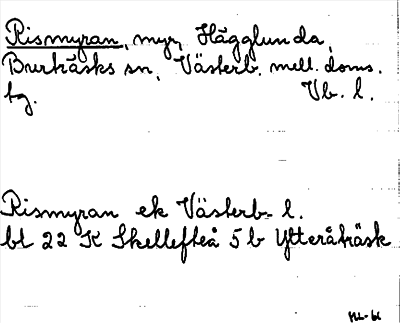 Rismyran, myr, Hägglunda,
Burträsks sn, Västerb. mell. doms.
tg. Vb. l.
Rismyran ek Västerb- l.
bl 22 K Skellefteå 5 b Ytteråträsk